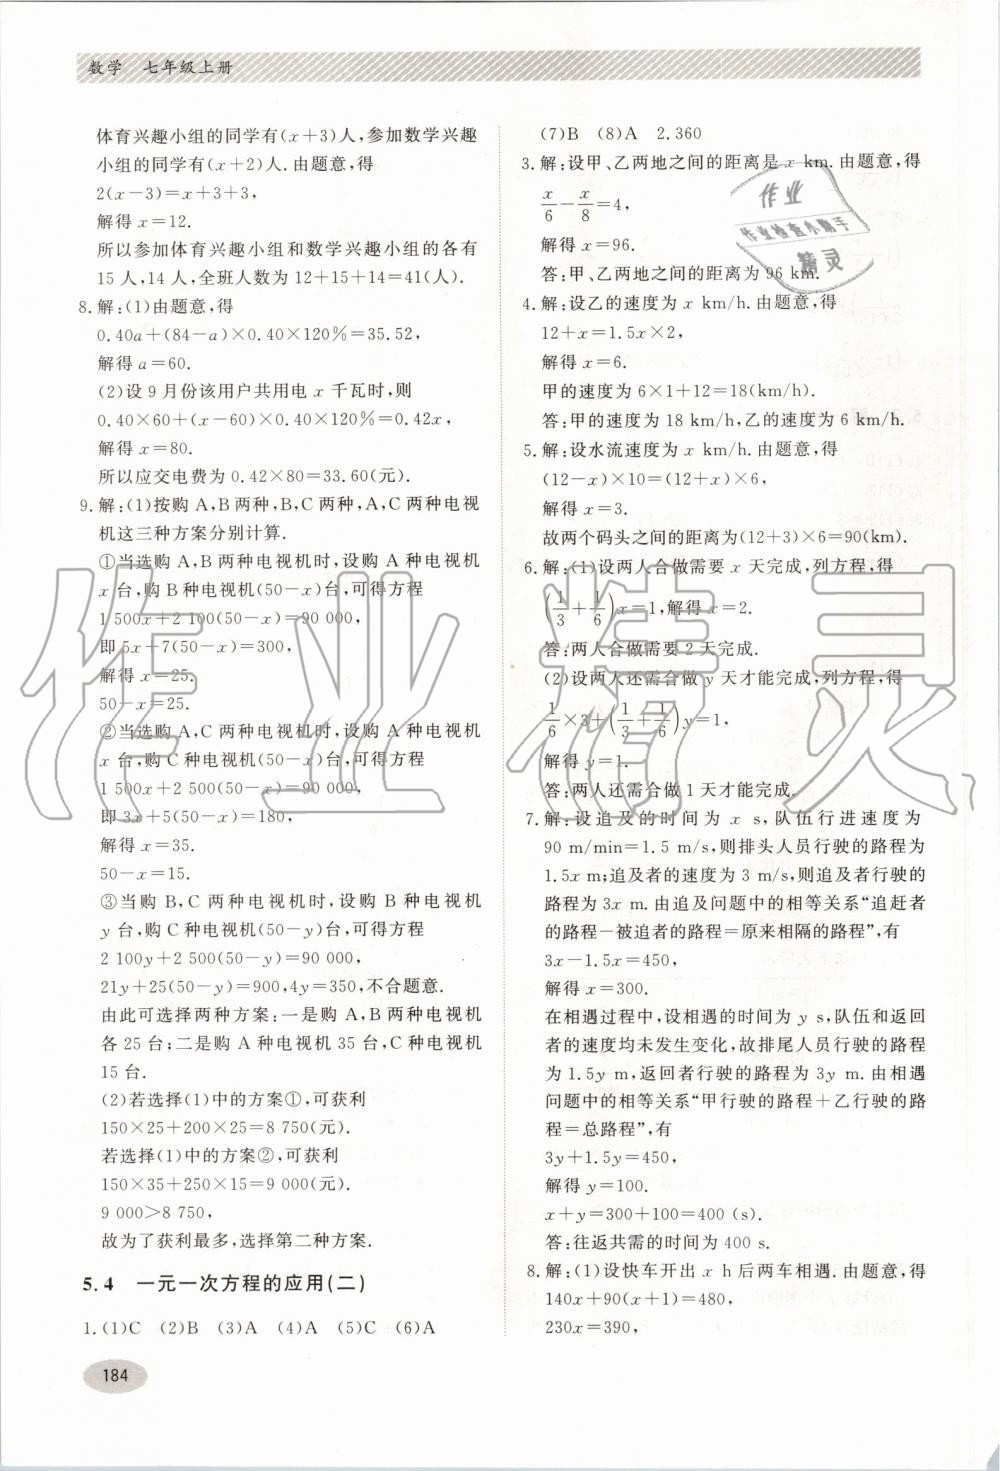 数学 七年级上册
体育兴趣小组的同学有(x+3)人,参加数学兴趣
小组的同学有(x+2)人.由题意,得
2(x-3)=x+3+3,
解得 x=12.
所以参加体育兴趣小组和数学兴趣小组的各有
15人,14人,全班人数为12+15+14=41(人).
8.解:(1)由题意,得
0.40a+(84-a)×0.40×120%=35.52,
解得 a=60.
(2)设9月份该用户共用电 x 千瓦时,则
0.40×60+(x-60)×0.40×120%=0.42x,
解得 x=80.
所以应交电费为0.42×80=33.60(元).
9.解:(1)按购A,B两种,B,C两种,A,C两种电视
机这三种方案分别计算.
①当选购A,B两种电视机时,设购A种电视机
x台,购B种电视机(50-x)台,可得方程
1 500x+2 100(50-x)=90 000,
即5x+7(50-x)=300,
解得 x=25.
50-x=25.
②当选购A,C两种电视机时,设购A种电视机
x台,购C种电视机(50-x)台,可得方程
1 500x+2 500(50-x)=90 000,
即3x+5(50-x)=180,
解得 x=35.
50-x=15.
③当购B,C两种电视机时,设购B种电视机
y台,购C种电视机(50-y)台,可得方程
2 100y+2 500(50-y)=90 000,
21y+25(50-y)=900,4y=350,不合题意.
由此可选择两种方案:一是购A,B两种电视机
各25台;二是购A种电视机35台,C种电视机
15台.
(2)若选择(1)中的方案①,可获利
150×25+200×25=8 750(元).
若选择(1)中的方案②,可获利
150×35+250×15=9 000(元).
9 000>8 750,
故为了获利最多,选择第二种方案.
5.4 一元一次方程的应用(二)
1.(1)C (2)B (3)A (4)A (5)C (6)A
184
(7)B (8)A 2.360
3.解:设甲、乙两地之间的距离是 x km.由题意,得
x/6-x/8=4,
解得 x=96.
答:甲、乙两地之间的距离为96 km.
4.解:设乙的速度为 x km/h.由题意,得
12+x=1.5x×2,
解得 x=6.
甲的速度为6×1+12=18(km/h).
答:甲的速度为18 km/h,乙的速度为6 km/h.
5.解:设水流速度为 x km/h.由题意,得
(12-x)×10=(12+x)×6,
解得 x=3.
故两个码头之间的距离为(12+3)×6=90(km).
6.解:(1)设两人合做需要 x 天完成,列方程,得
(1/3+1/6)x=1,解得 x=2.
答:两人合做需要2天完成.
(2)设两人还需合做 y 天才能完成,列方程,得
1/6×3+(1/3+1/6)y=1,
解得 y=1.
答:两人还需合做1天才能完成.
7.解:设追及的时间为 x s,队伍行进速度为
90 m/min=1.5 m/s,则排头人员行驶的路程为
1.5x m;追及者的速度为3 m/s,则追及者行驶的
路程为3x m.由追及问题中的相等关系“追赶者
的路程-被追者的路程=原来相隔的路程”,有
3x-1.5x=450,
解得 x=300.
在相遇过程中,设相遇的时间为 y s,队伍和返回
者的速度均未发生变化,故排尾人员行驶的路程
为1.5y m,返回者行驶的路程为3y m.由相遇
问题中的相等关系“甲行驶的路程+乙行驶的路程
=总路程”,有
3y+1.5y=450,
解得 y=100.
x+y=300+100=400 (s).
答:往返共需的时间为400 s.
8.解:(1)设快车开出 x h后两车相遇.由题意,得
140x+90(x+1)=480,
230x=390,
作业
作业检查小帮手
精灵
作业精灵